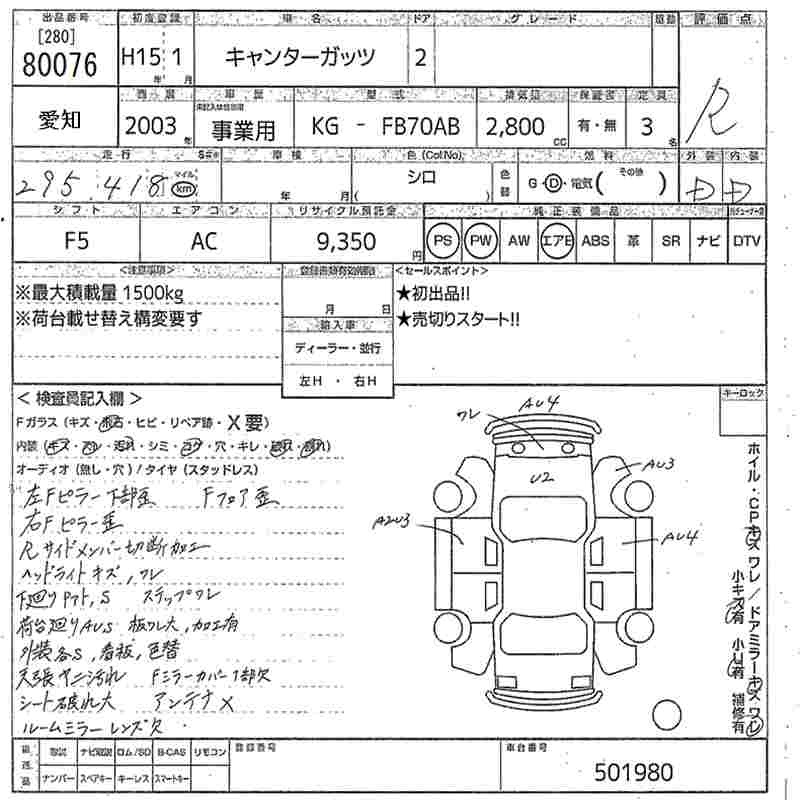 出品番号 初度登録 車名 ドア グレード 評価点
[280]
80076 H15 1 キャンターガッツ 2 R
年 月
車歴 型式 排気量 保証書 定員
愛知 2003年 事業用 KG - FB70AB 2,800cc 有・無 3名
走行 車検 色(ColNo) 燃料 外装 内装
295,418 マイル km 年 月 シロ ( ) 色替 G・D・電気( その他 ) D D
シフト エアコン リサイクル預託金 純正装備品
F5 AC 9,350円 PS PW AW エアB ABS 革 SR ナビ DTV
<注意事項> <セールスポイント>
※最大積載量 1500kg ★初出品!!
※荷台載せ替え構変要す 月 日 ★売切りスタート!!
輸入車
ディーラー・並行
左H ・ 右H
キーロック
< 検査員記入欄 >
Fガラス (キズ・飛石・ヒビ・リペア跡・X要)
内装 (キズ・スレ・汚れ・シミ・コゲ・穴・キレ・破れ・割れ)
オーディオ (無し・穴) / タイヤ (スタッドレス)
左Fピラー下部歪 Fフロア歪
右Fピラー歪
Rサイドメンバー切断加工
ヘッドライトキズ,ワレ
下廻りサビ,S ステップワレ
荷台廻りAUS 板ワレ大,加工有
外装各S,看板,色替
天張ベニ汚れ Fミラーカバー1部欠
シート破れ大 アンテナX
ルームミラーレンズ欠
ワレ AU4
U2
AU3
A2U3
AU4
ホイル・CPキズワレ/ドアミラーキズワレ
小キズ有 小U有 補修有
取説 ナビ取説 ロム/SD B-CAS リモコン 登録番号 車台番号
ナンバー スペアキー キーレス スマートキー 501980